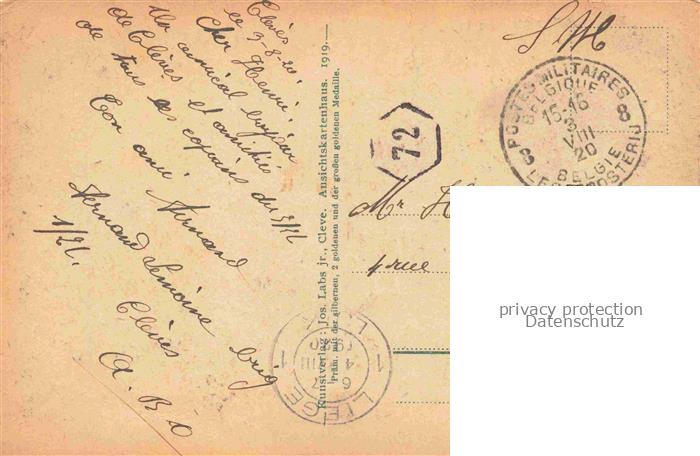 Clèves
le 3-8-20
Cher Henri!
Un amical bonjour
de Clèves et amitiés
de tous les copains du
Ton ami Fernand
Fernand Lemoine brig
1/2L.
Clèves
A. B. O
Kunstverlag: Jos. Labs jr., Cleve. Ansichtskartenhaus. 1919.
Präm. mit der silbernen, 2 goldenen und der großen goldenen Medaille.
S M
POSTES MILITAIRES
BELGIQUE
8 15-16 8
3
VIII
20
BELGIE
LEGERPOSTERIJ
72
Mr H
4 rue
LIEGE
1 1
privacy protection
Datenschutz